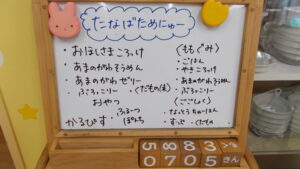 たなばためにゅー
・おほしさまころっけ
・あまのがわそうめん
・あまのがわぜりー
・ぶろっこりー ・くだもの
おやつ
かるぴす
・ふるーつ
ぽんち
〈ももぐみ〉
・ごはん
・やきころっけ
・あまのがわそうめん
・ぶろっこりー
〈ごごしょく〉
・なっとうちゃーはん
・すーぷ ・くだもの
5 8 8 3
0 7 0 5